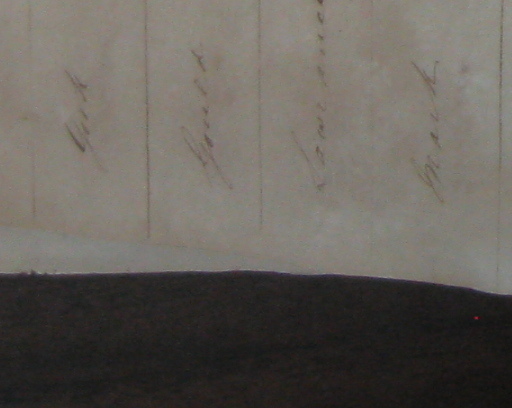 York
Gould
Lawrance
Mark